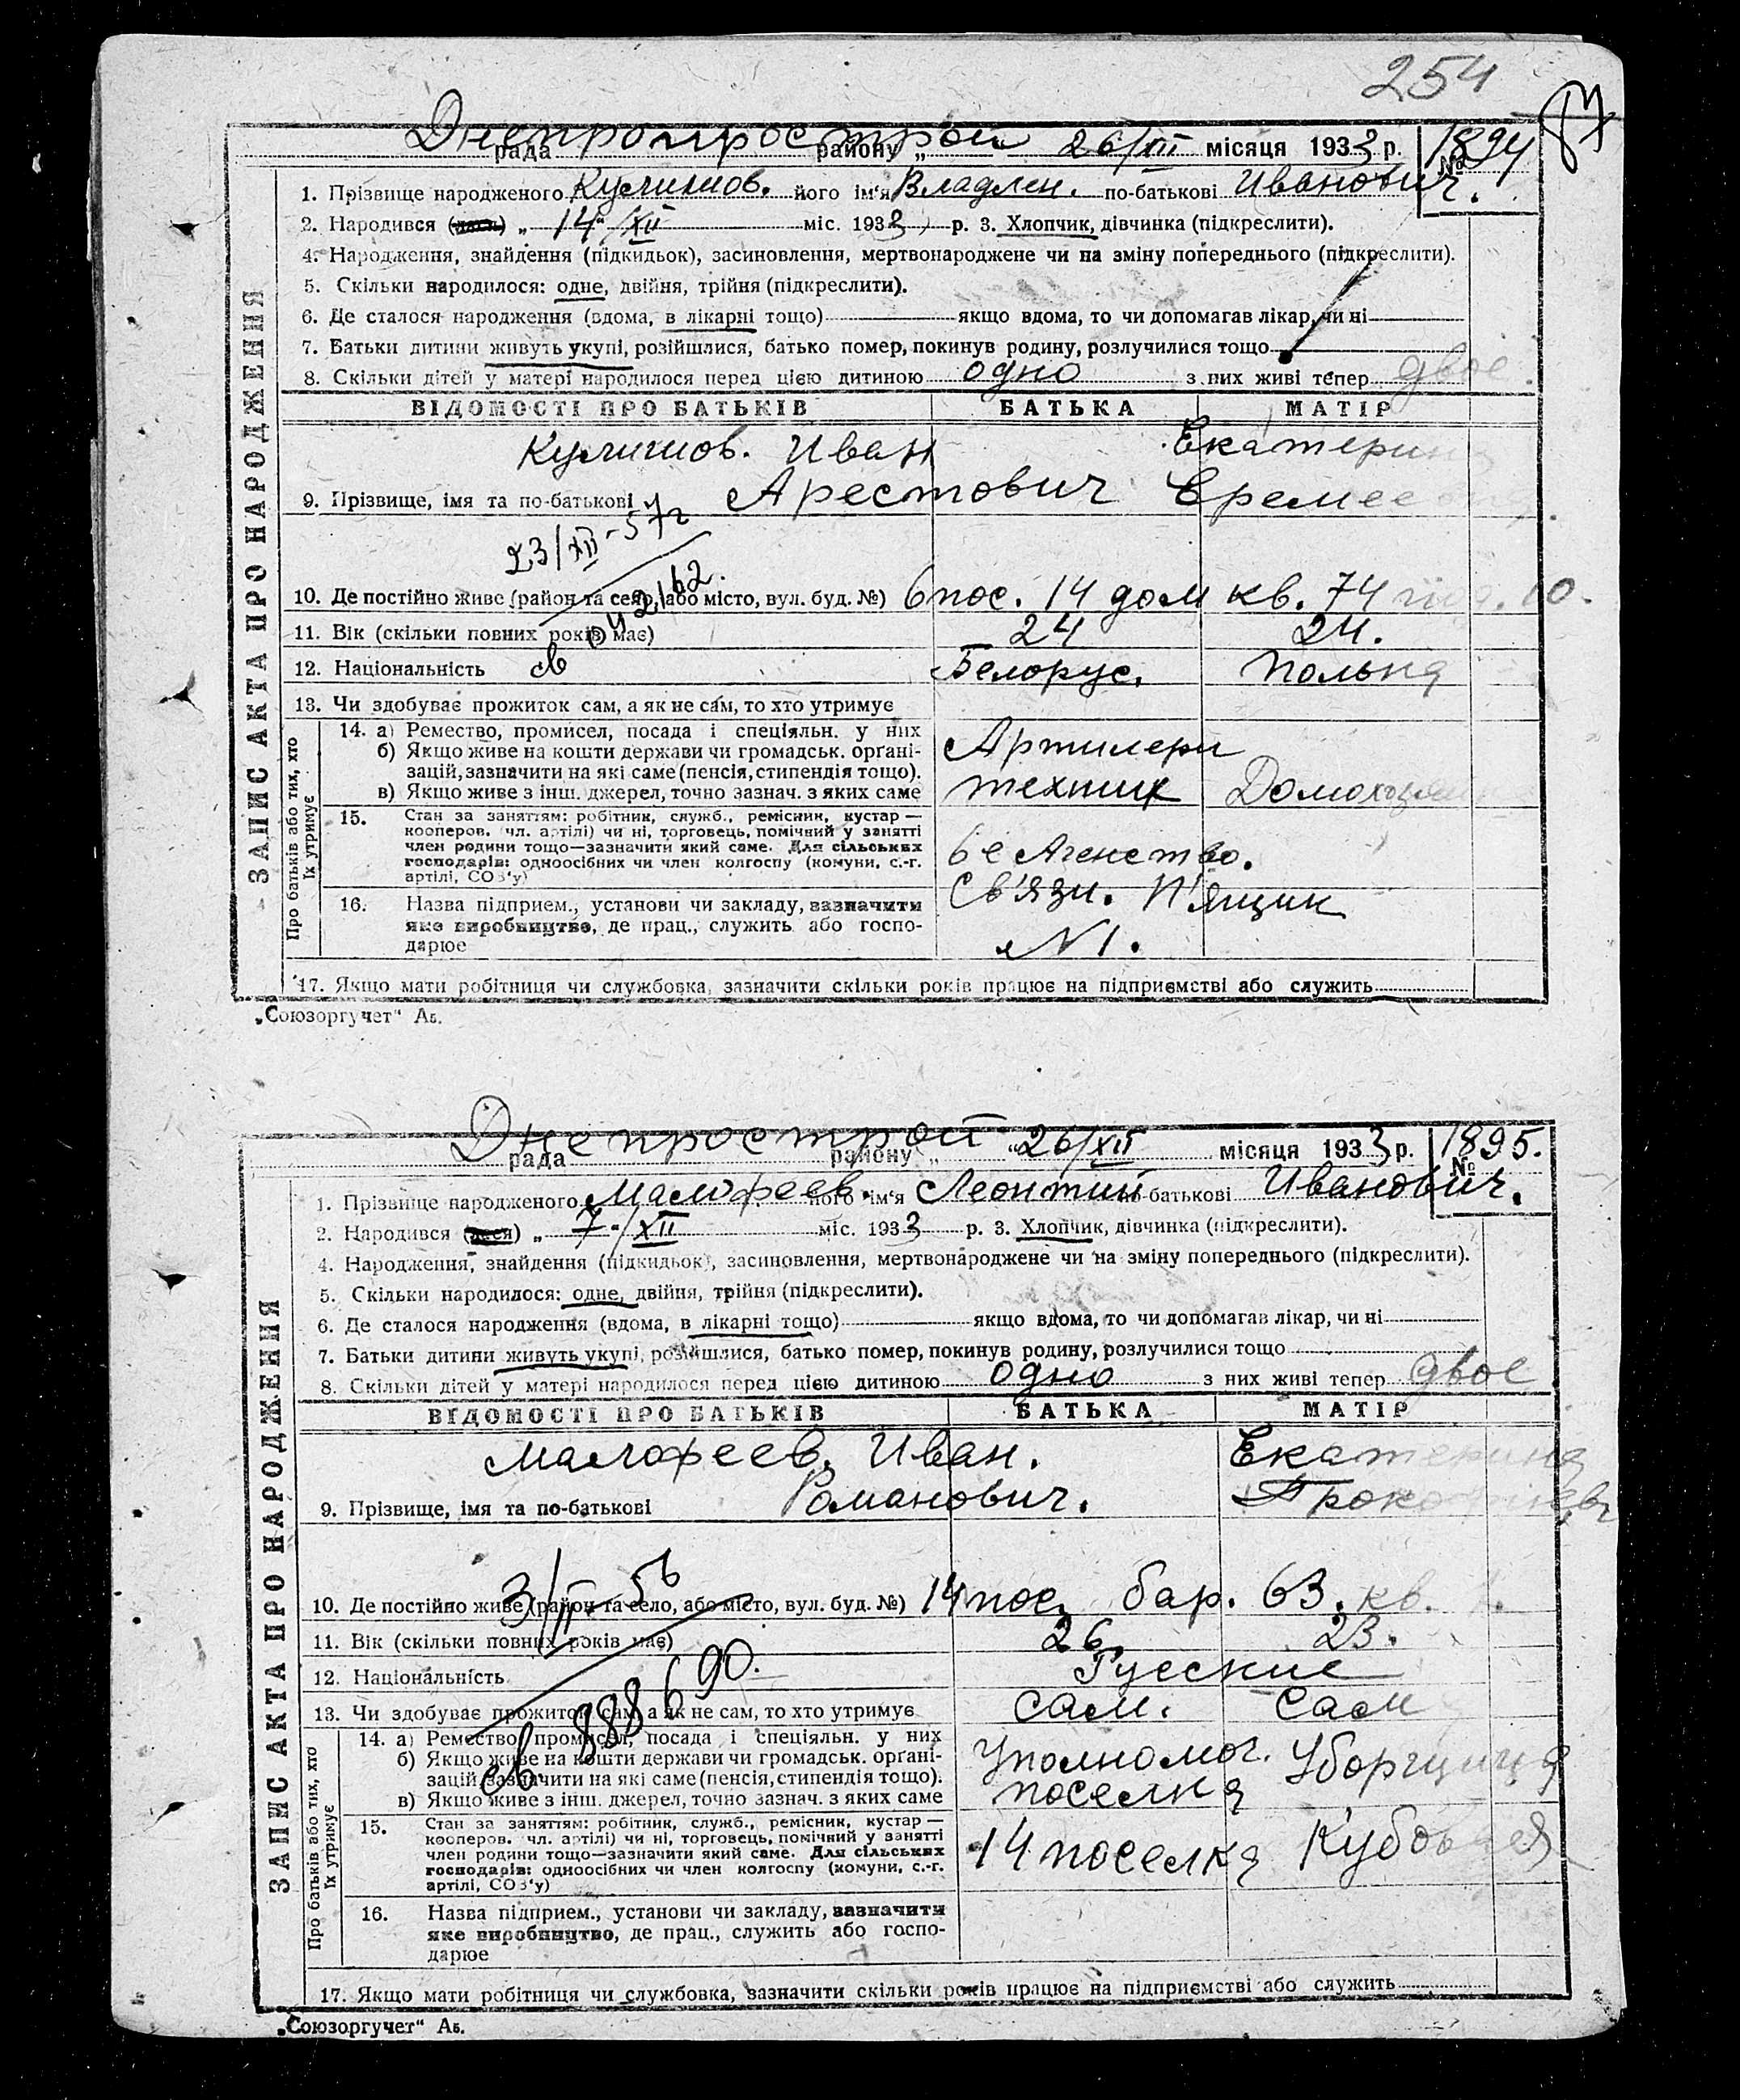 254
Днепропрострой
рада району „ 26/XII місяця 1933 р. № 1894
1. Прізвище народженого його ім'я Владлен. по-батькові Иванович.
2. Народився „ 14/XII міс. 1933 р. 3. Хлопчик, дівчинка (підкреслити).
4. Народження, знайдення (підкидьок), засиновлення, мертвонароджене чи на зміну попереднього (підкреслити).
5. Скільки народилося: одне, двійня, трійня (підкреслити).
6. Де сталося народження (вдома, в лікарні тощо) якщо вдома, то чи допомагав лікар, чи ні
7. Батьки дитини живуть укупі, розійшлися, батько помер, покинув родину, розлучилися тощо
8. Скільки дітей у матері народилося перед цією дитиною одно з них живі тепер двое.
ВІДОМОСТІ ПРО БАТЬКІВ БАТЬКА МАТІР
Иван Екатерина
9. Прізвище, імя та по-батькові Арестович
23/XII-57г
10. Де постійно живе (район та село, або місто, вул. буд. №) 6 пос. 14 дом кв. 74
11. Вік (скільки повних років має) 24 24.
12. Національність Белорус. Полька
13. Чи здобуває прожиток сам, а як не сам, то хто утримує
14. а) Ремество, промисел, посада і спеціяльн. у них
б) Якщо живе на кошти держави чи громадськ. орґані-
зацій, зазначити на які саме (пенсія, стипендія тощо).
в) Якщо живе з інш. джерел, точно зазнач. з яких саме
Артилери
техник Домохозяйка
15. Стан за заняттям: робітник, служб., ремісник, кустар —
кооперов. чл. артілі) чи ні, торговець, помічний у занятті
член родини тощо—зазначити який саме. Для сільських
господарів: одноосібних чи член колгоспу (комуни, с.-г.
артілі, СОЗ'у)
6е Агенство.
Св'язи. П'ящик
№ 1.
16. Назва підприєм., установи чи закладу, зазначити
яке виробництво, де прац., служить або госпо-
дарює
17. Якщо мати робітниця чи службовка, зазначити скільки років працює на підприємстві або служить
ЗАПИС АКТА ПРО НАРОДЖЕННЯ
Про батьків або тих, хто їх утримує
„Союзоргучет“ Аб.
Днепрострой
рада району „ 26/XII місяця 1933 р. № 1895.
1. Прізвище народженого Малофеев. його ім'я Леонтий по-батькові Иванович.
2. Народився „ 7/XII міс. 1933 р. 3. Хлопчик, дівчинка (підкреслити).
4. Народження, знайдення (підкидьок), засиновлення, мертвонароджене чи на зміну попереднього (підкреслити).
5. Скільки народилося: одне, двійня, трійня (підкреслити).
6. Де сталося народження (вдома, в лікарні тощо) якщо вдома, то чи допомагав лікар, чи ні
7. Батьки дитини живуть укупі, розійшлися, батько помер, покинув родину, розлучилися тощо
8. Скільки дітей у матері народилося перед цією дитиною одно з них живі тепер двое
ВІДОМОСТІ ПРО БАТЬКІВ БАТЬКА МАТІР
Малофеев. Иван. Екатерина
9. Прізвище, імя та по-батькові Романович.
10. Де постійно живе (район та село, або місто, вул. буд. №) 14 пос. бар. 63. кв.
11. Вік (скільки повних років має) 26. 23.
12. Національність Русские
13. Чи здобуває прожиток сам, а як не сам, то хто утримує сам. Сам
14. а) Ремество, промисел, посада і спеціяльн. у них
б) Якщо живе на кошти держави чи громадськ. орґані-
зацій, зазначити на які саме (пенсія, стипендія тощо).
в) Якщо живе з інш. джерел, точно зазнач. з яких саме
Уполномог. Уборщица
поселка
15. Стан за заняттям: робітник, служб., ремісник, кустар —
кооперов. чл. артілі) чи ні, торговець, помічний у занятті
член родини тощо—зазначити який саме. Для сільських
господарів: одноосібних чи член колгоспу (комуни, с.-г.
артілі, СОЗ'у)
14 поселка
16. Назва підприєм., установи чи закладу, зазначити
яке виробництво, де прац., служить або госпо-
дарює
17. Якщо мати робітниця чи службовка, зазначити скільки років працює на підприємстві або служить
ЗАПИС АКТА ПРО НАРОДЖЕННЯ
Про батьків або тих, хто їх утримує
„Союзоргучет“ Аб.